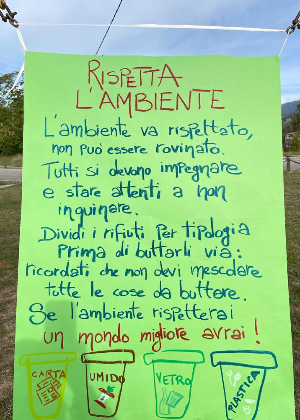 RISPETTA
L'AMBIENTE
L'ambiente va rispettato,
non può essere rovinato.
Tutti si devono impegnare
e stare attenti a non
inquinare.
Dividi i rifiuti per tipologia
prima di buttarli via:
ricordati che non devi mescolare
tutte le cose da buttare.
Se l'ambiente rispetterai
un mondo migliore avrai!
CARTA UMIDO VETRO PLASTICA